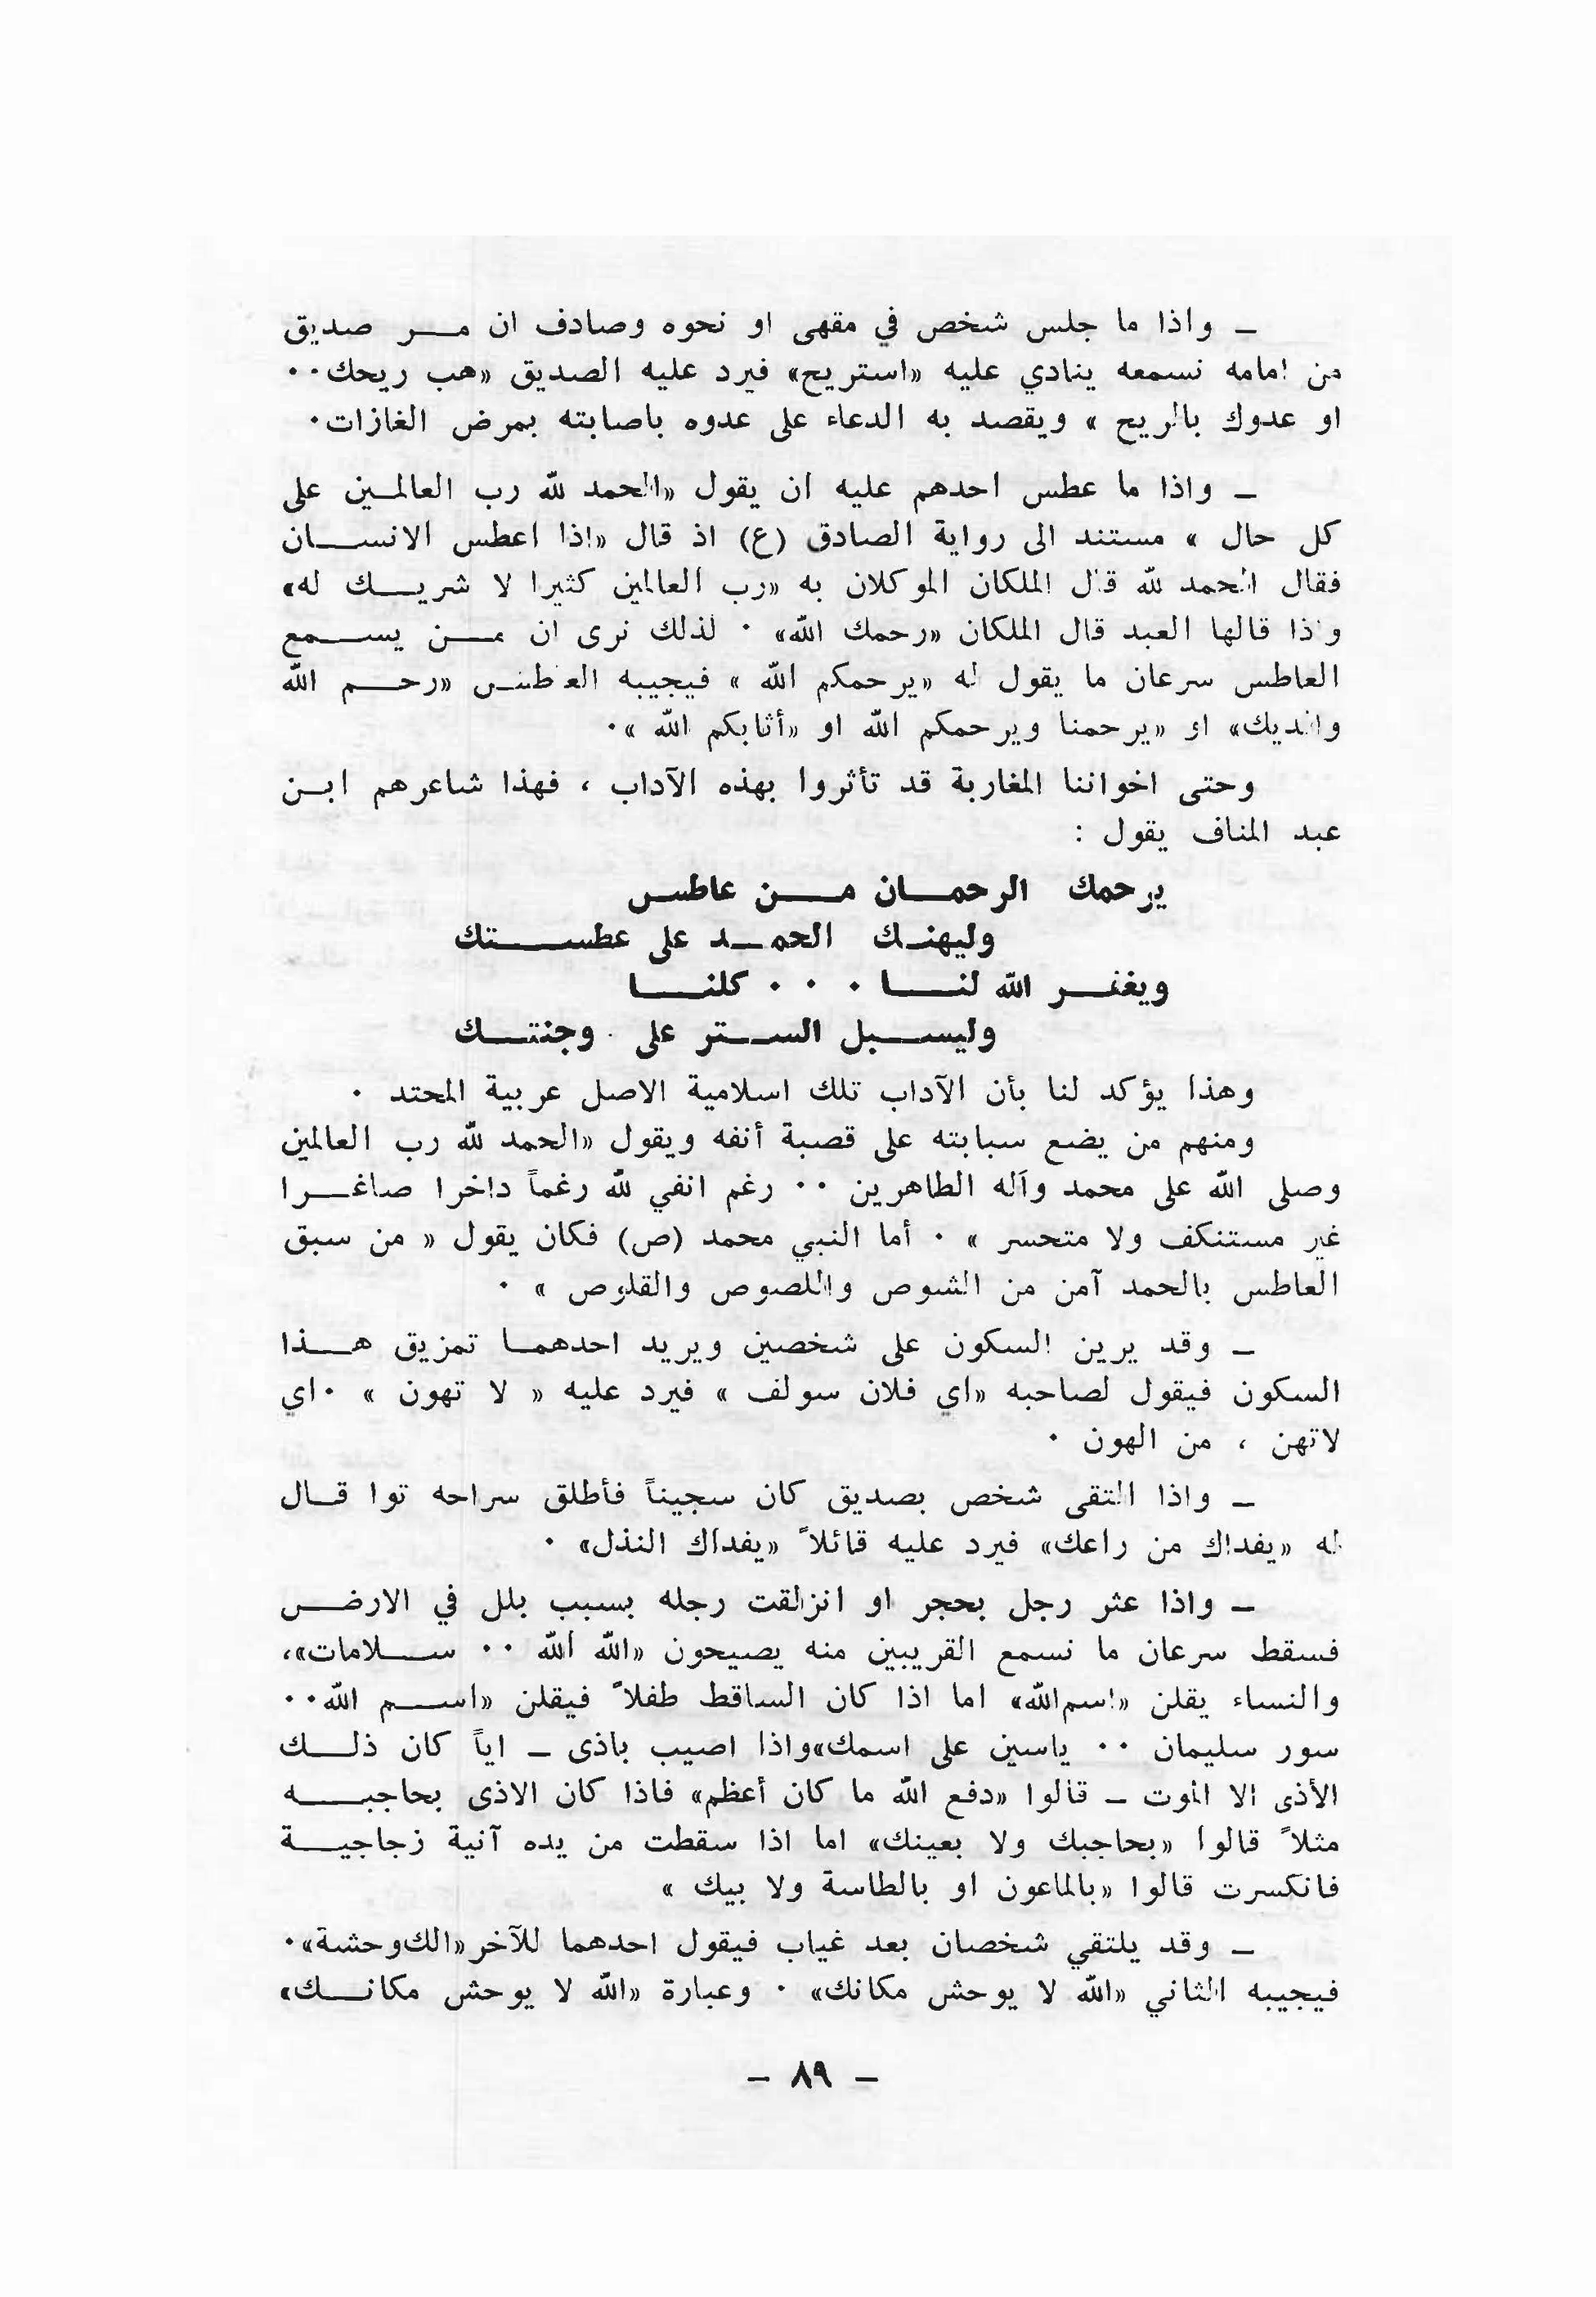 ـ واذا ما جلس شخص في مقهى او نحوه وصادف ان مر صديق
من امامه نسمعه ينادي عليه «استريح» فيرد عليه الصديق «هب ريحك٠٠
او عدوك بالريح » ويقصد به الدعاء على عدوه باصابته بمرض الغازات٠
ـ واذا ما عطس احدهم عليه ان يقول «الحمد لله رب العالمين على
كل حال » مستند الى رواية الصادق (ع) اذ قال «اذا اعطس الانسان
فقال الحمد لله قال الملكان الموكلان به «رب العالمين كثيرا لا شريك له»
واذا قالها العبد قال الملكان «رحمك الله» ٠ لذلك نرى ان من يسمع
العاطس سرعان ما يقول له «يرحمكم الله » فيجيبه العاطس «رحم الله
والديك» او «يرحمنا ويرحمكم الله او «أثابكم الله »٠
وحتى اخواننا المغاربة قد تأثروا بهذه الآداب ، فهذا شاعرهم ابن
عبد المناف يقول :
يرحمك الرحمان من عاطس
وليهنك الحمد على عطستك
ويغفر الله لنا ٠ ٠ ٠ كلنا
وليسبل الستر على وجنتك
وهذا يؤكد لنا بأن الآداب تلك اسلامية الاصل عربية المحتد ٠
ومنهم من يضع سبابته على قصبة أنفه ويقول «الحمد لله رب العالمين
وصلى الله على محمد وآله الطاهرين ٠٠ رغم انفي لله رغماً داخرا صاغرا
غير مستنكف ولا متحسر » ٠ أما النبي محمد (ص) فكان يقول « من سبق
العاطس بالحمد آمن من الشوص واللصوص والقلوص » ٠
ـ وقد يرين السكون على شخصين ويريد احدهما تمزيق هذا
السكون فيقول لصاحبه «اي فلان سولف » فيرد عليه « لا تهون » ٠اي
لاتهن ، من الهون ٠
ـ واذا التقى شخص بصديق كان سجيناً فأطلق سراحه توا قال
له «يفداك من راعك» فيرد عليه قائلاً «يفداك النذل» ٠
ـ واذا عثر رجل بحجر او انزلقت رجله بسبب بلل في الارض
فسقط سرعان ما نسمع القريبين منه يصيحون «الله الله ٠٠ سلامات»،
والنساء يقلن «اسم‌الله» اما اذا كان الساقط طفلاً فيقلن «اسم الله٠٠
سور سليمان ٠٠ ياسين على اسمك»واذا اصيب باذى ـ اياً كان ذلك
الأذى الا الموت ـ قالوا «دفع الله ما كان أعظم» فاذا كان الاذى بحاجبه
مثلاً قالوا «بحاجبك ولا بعينك» اما اذا سقطت من يده آنية زجاجية
فانكسرت قالوا «بالماعون او بالطاسة ولا بيك »
ـ وقد يلتقي شخصان بعد غياب فيقول احدهما للآخر«الك‌وحشة»٠
فيجيبه الثاني «الله لا يوحش مكانك» ٠ وعبارة «الله لا يوحش مكانك»
ـ ٨٩ ـ